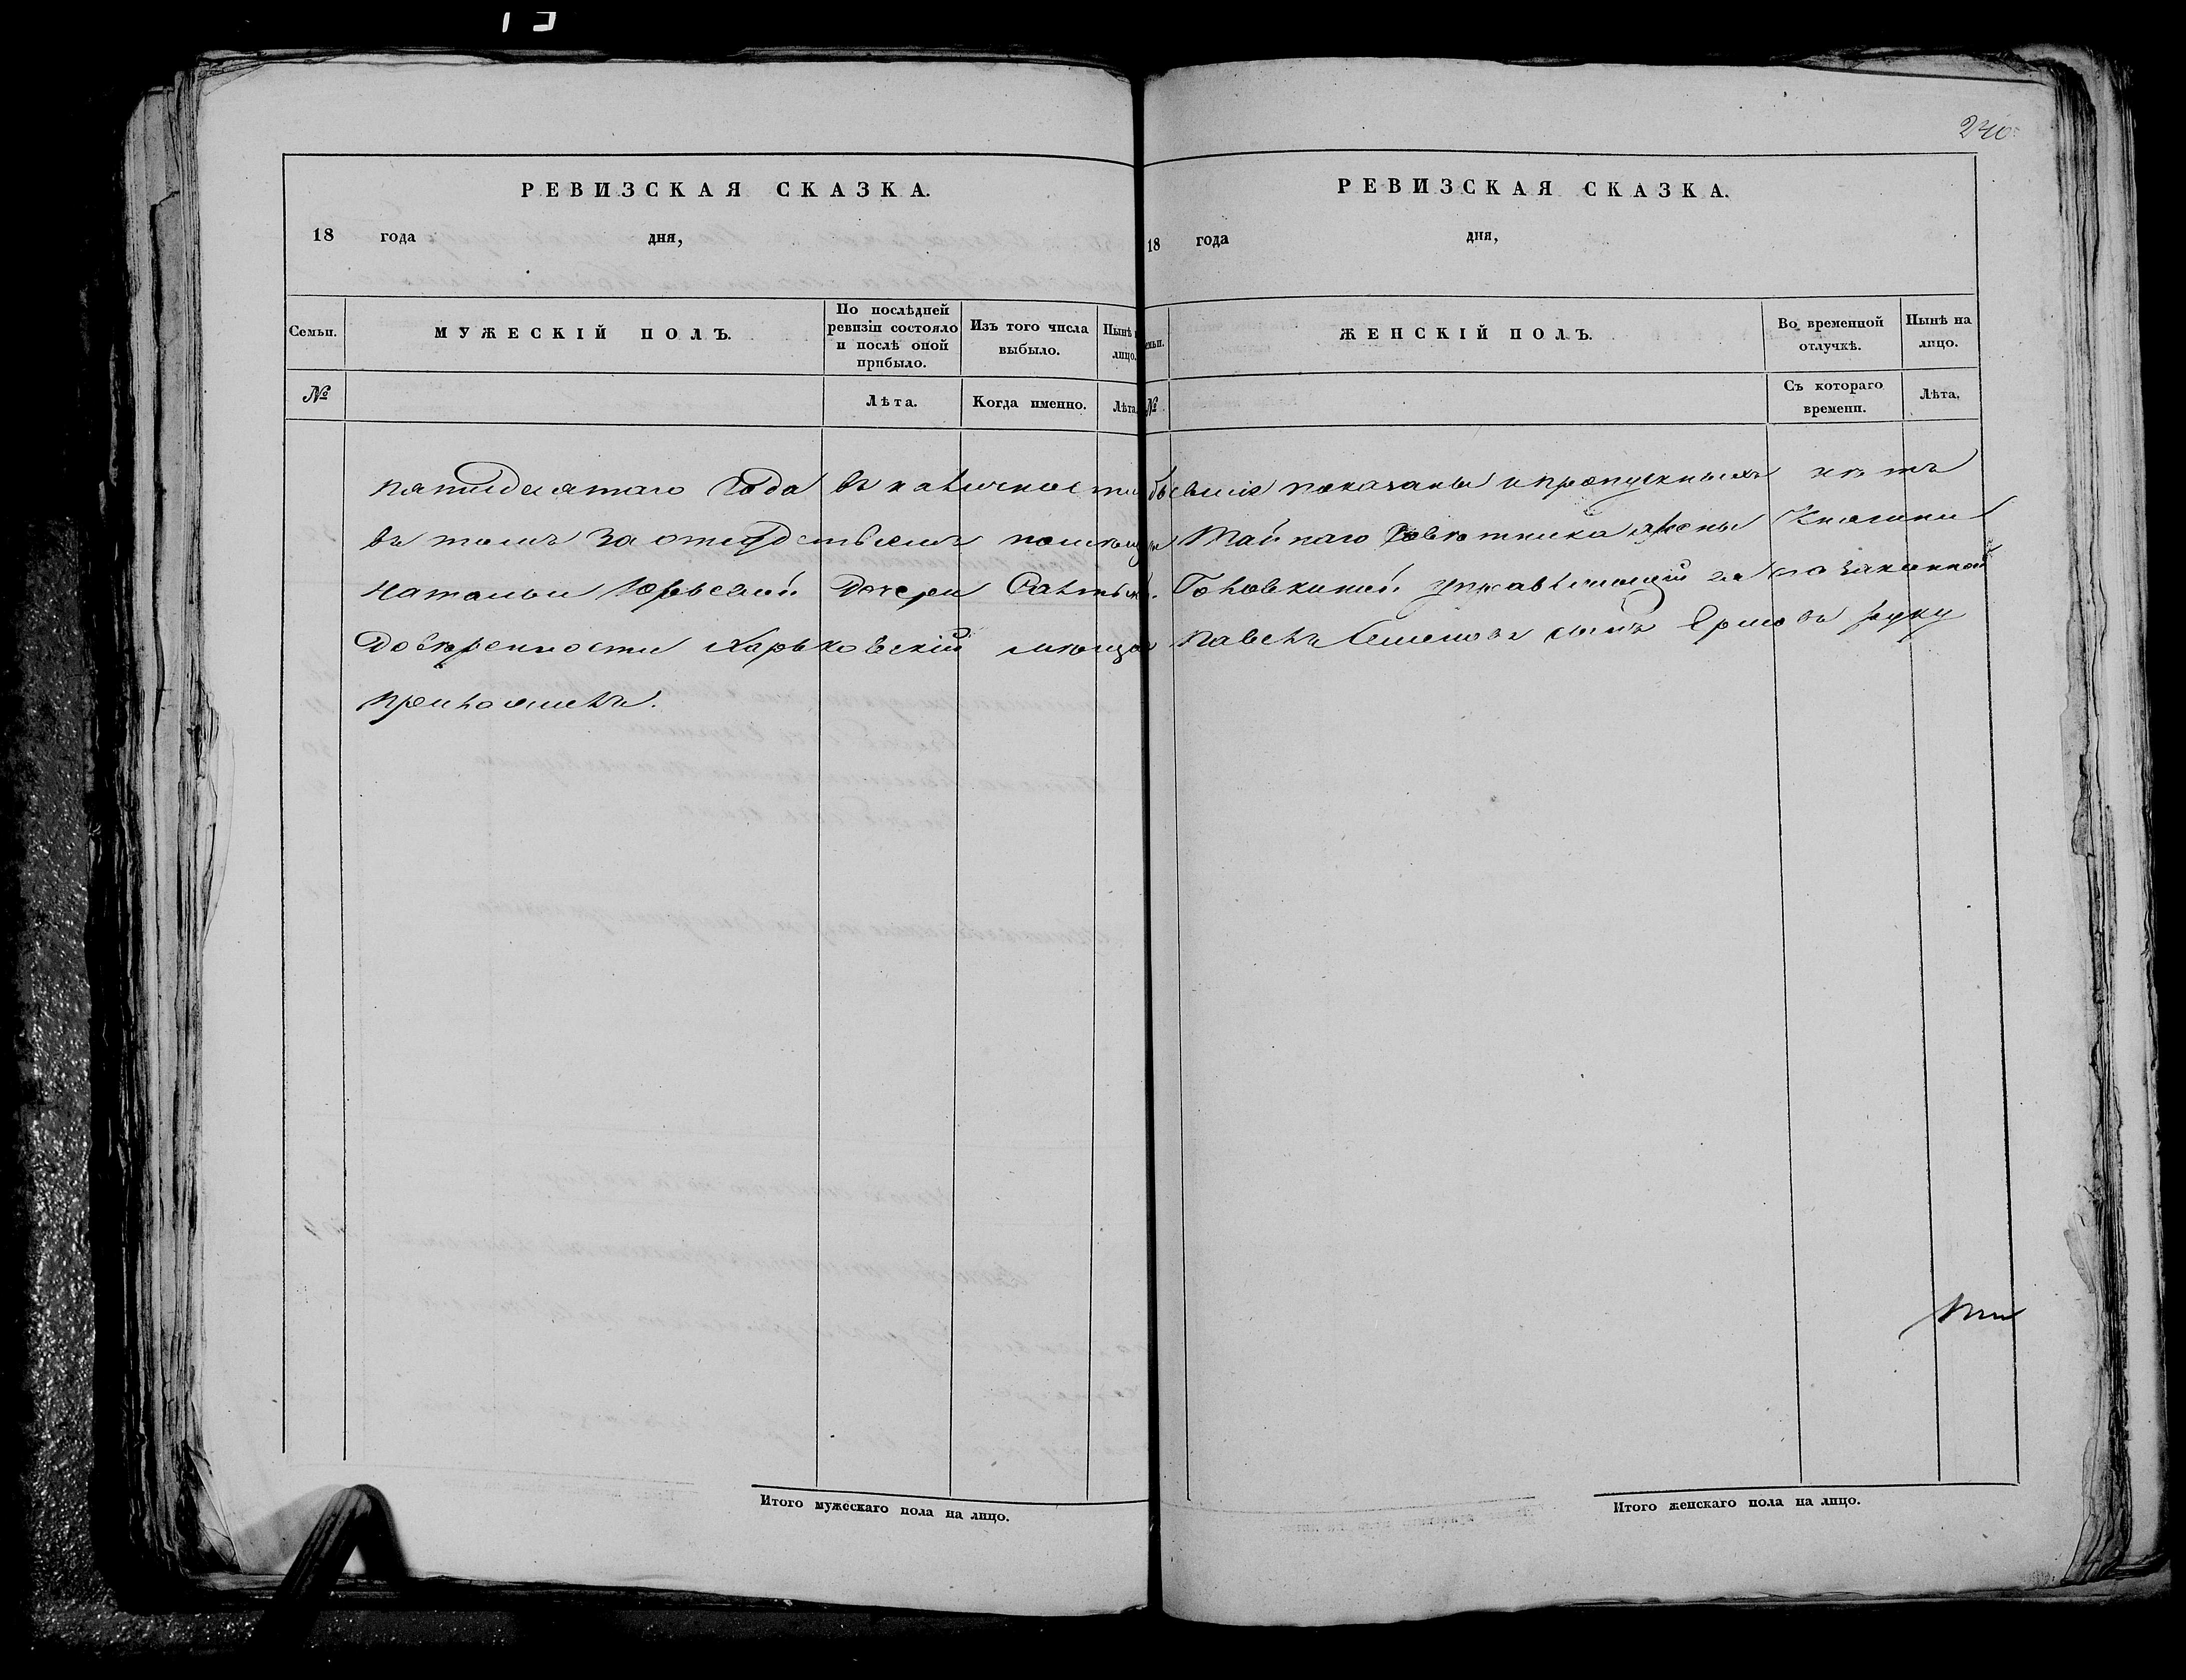 240
РЕВИЗСКАЯ СКАЗКА.
18 года дня,
Семьи. МУЖЕСКІЙ ПОЛЪ. По послѣдней ревизіи состояло и послѣ оной прибыло. Изъ того числа выбыло. Нынѣ лицо.
№ Лѣта. Когда именно. Лѣта.
РЕВИЗСКАЯ СКАЗКА.
18 года дня,
ЖЕНСКІЙ ПОЛЪ. Во временной отлучкѣ. Нынѣ на лицо.
№ Съ котораго времени. Лѣта.
пятидесятаго года въ наличности бывшія показаны и пропускныхъ нѣтъ
въ томъ за отсудствіемъ помѣщицы Тайнаго Совѣтника жены Княгини
Натальи Юрьевной Дочери Салтыков. Головкиной управляющій по законной
Довѣренности Харьковскій мѣщан Павелъ Семеновъ сынъ Ермовъ руку
приложилъ.
Итого мужескаго пола на лицо.
Итого женскаго пола на лицо.